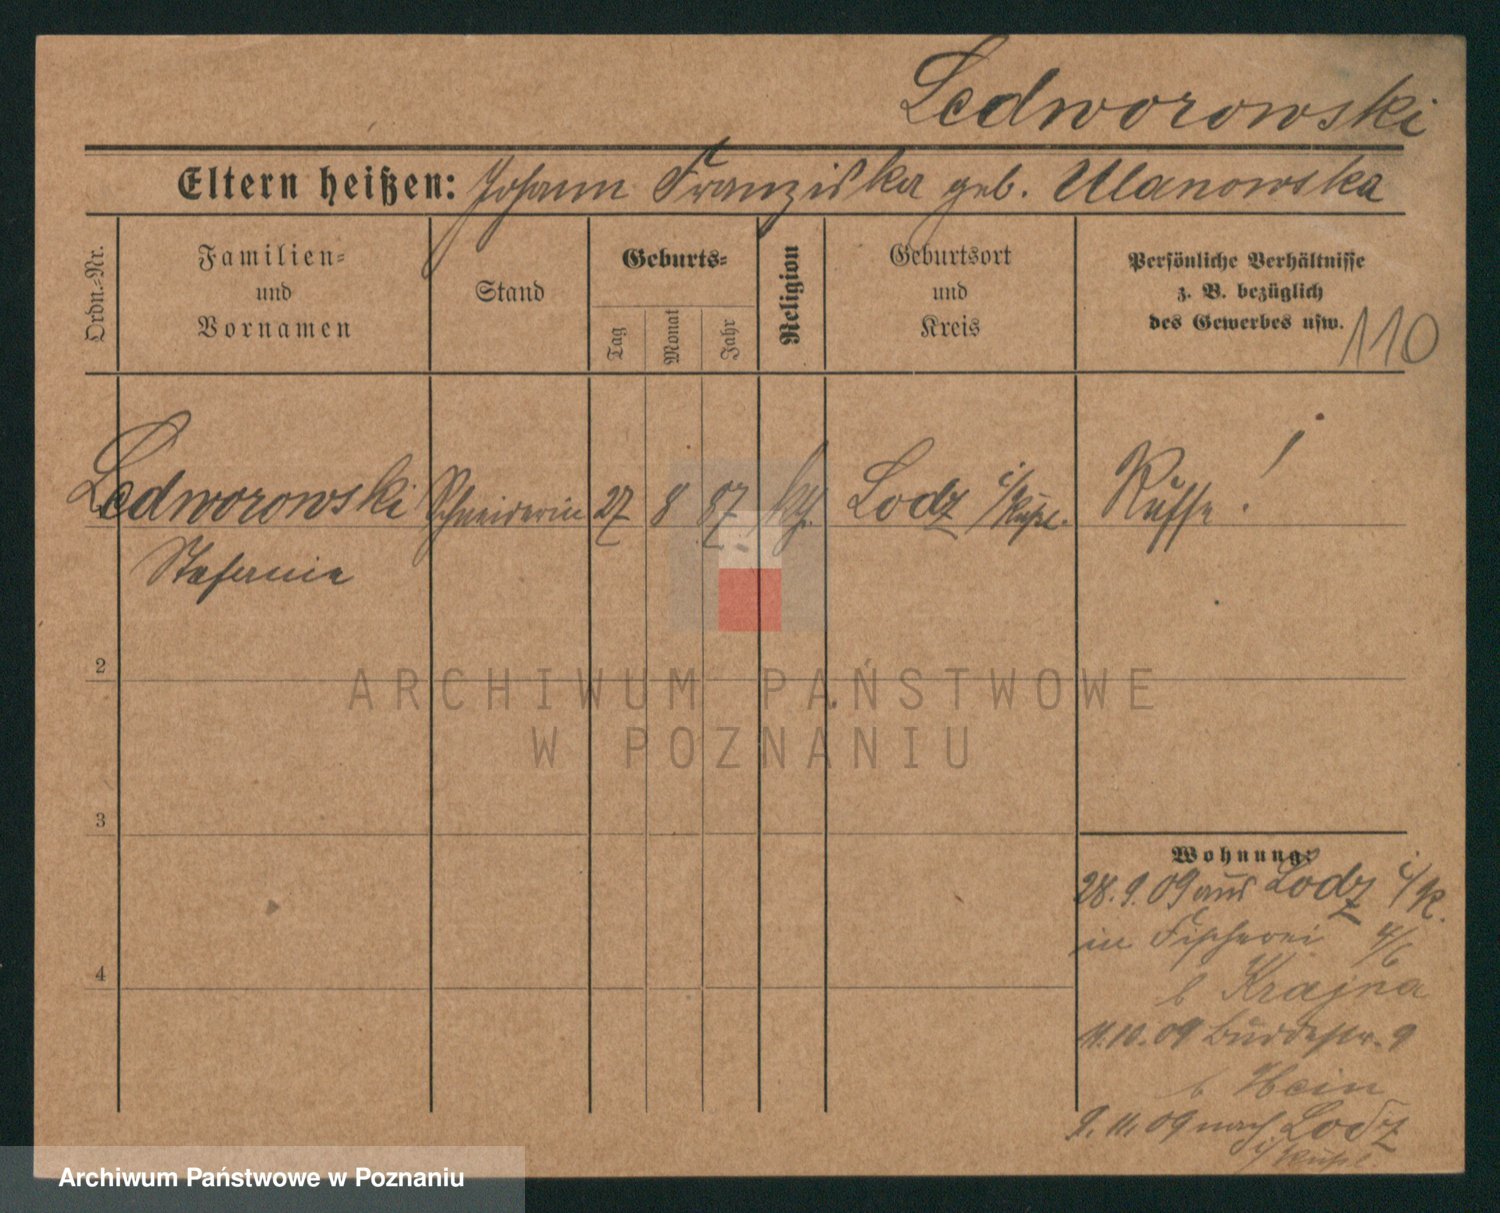 Ledworowski
Eltern heißen: Johann Franziska geb. Ulanowska
Ordn.-Nr.
Familien-
und
Vornamen
Stand
Geburts-
Tag
Monat
Jahr
Religion
Geburtsort
und
Kreis
Persönliche Verhältnisse
z. B. bezüglich
des Gewerbes usw.
110
Ledworowski Schneiderin 27 8 87 kth. Lodz i/Rußl. Russe!
Stefania
2
3
4
Wohnung:
28.9.09 aus Lodz i/R.
in Fischerei 4/6
b Krajna
11.10.09 Buddestr. 9
b Hein
9.11.09 nach Lodz
i/Rußl.
ARCHIWUM PAŃSTWOWE
W POZNANIU
Archiwum Państwowe w Poznaniu